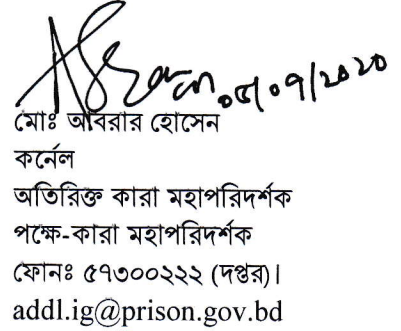 ০৫/০৭/২০২০
মোঃ আবরার হোসেন
কর্নেল
অতিরিক্ত কারা মহাপরিদর্শক
পক্ষে-কারা মহাপরিদর্শক
ফোনঃ ৫৭৩০০২২২ (দপ্তর)।
addl.ig@prison.gov.bd